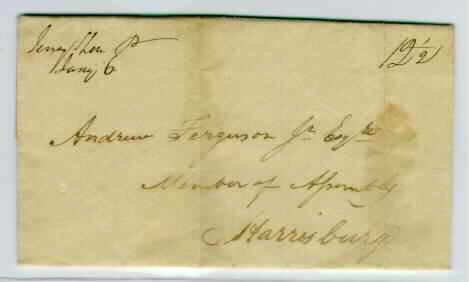 Jersey Shore Pa
Jany 6
12 1/2
Andrew Ferguson Jr. Esqre
Member of Assembly
Harrisburg